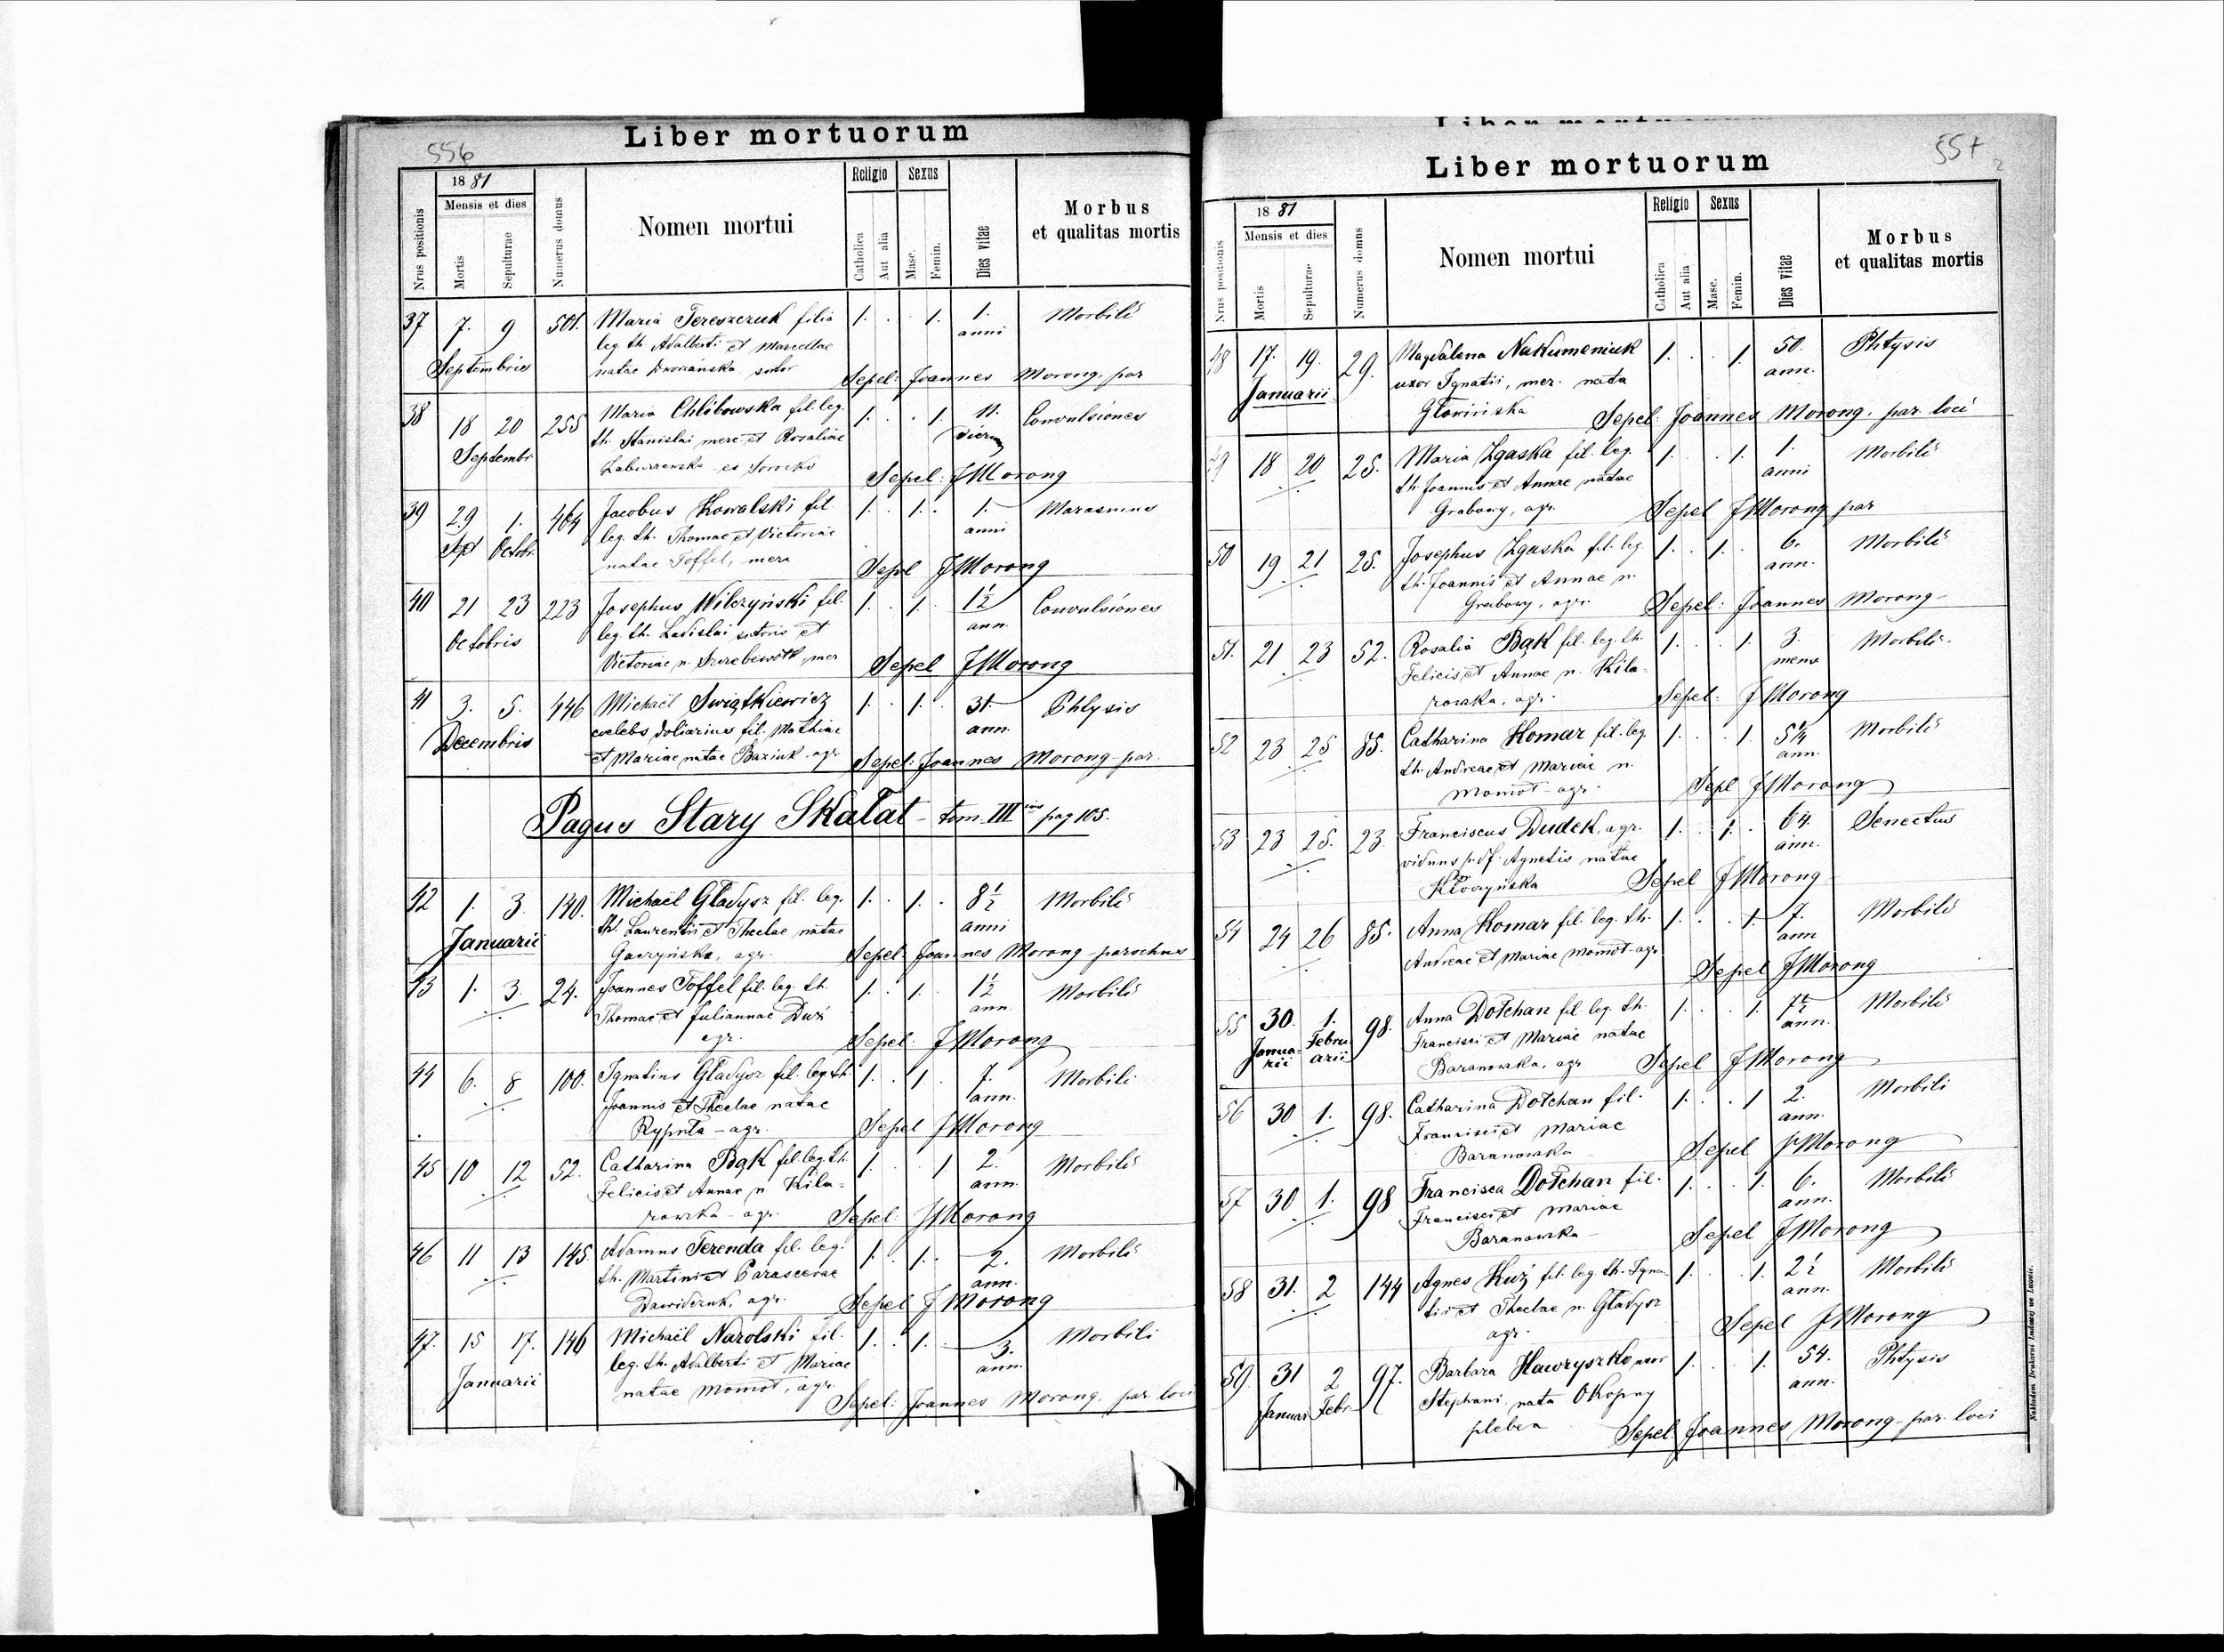 556
Liber mortuorum
Nrus positionis
1881
Mensis et dies
Mortis
Sepulturae
Numerus domus
Nomen mortui
Religio
Catholica
Aut alia
Sexus
Masc.
Femin.
Dies vitae
Morbus
et qualitas mortis
37 7. 9 501. Maria Tereszczuk filia 1. . . 1. 1. Morbili
leg. th. Adalberti et Marcellae anni
Septembris natae sutor Sepel: Joannes Morong, par
38 18 20 255 Maria Chlibowska fil. leg. 1. . 1. 11. Convulsiones
th. Stanislai merc et Rosaliae dierum
Septembr Sepel: JMorong
39 29 1. 464 Jacobus Kowalski fil 1. . 1. . 1. Marasmus
Sept Octobr. leg. th. Thomae et Victoriae anni
natae Toffel, merc Sepel JMorong
40 21 23 223 Josephus Wilczyński fil. 1. . 1. . 1½ Convulsiones
Octobris leg. th. Ladislai sutoris et ann.
Victoriae n. mer Sepel JMorong
41 3. 5. 446 Michaël Swiątkiewicz 1. . 1. . 31. Phtysis
Decembris coelebs doliarius fil. Mathiae ann.
et Mariae natae Baziuk agr. Sepel: Joannes Morong par.
Pagus Stary Skałat – tom. III ius pag 105.
42 1. 3. 140. Michaël Gładysz fil. leg. 1. . 1. . 8½ Morbili
Januarii th. Laurentii et Theclae natae anni
Gaczyńska, agr. Sepel: Joannes Morong parochus
43 1. 3. 24. Joannes Toffel fil. leg. th. 1. . 1. 1½ Morbili
Thomae et Juliannae Duź ann.
agr. Sepel: JMorong
44 6. 8 100. Ignatius Gładysz fil. leg. th. 1. . 1. 7. Morbili
Joannis et Theclae natae ann.
Rypnta – agr. Sepel JMorong
45 10 12 52. Catharina Bąk fil leg. th. 1. . 1 2. Morbili
Felicis et Annae n. Kila- ann.
rowska – agr. Sepel: JMorong
46 11 13 145. Adamus Terenda fil. leg. 1. . 1. . 2. Morbili
th. Martini et Parascevae ann.
Dawidczuk, agr. Sepel J Morong
47. 15 17. 146 Michaël Narolski fil. 1. . 1. . 3. Morbili
leg. th. Adalberti et Mariae ann.
Januarii natae Momot, agr. Sepel: Joannes Morong. par loci
557
Liber mortuorum
Nrus positionis
1881
Mensis et dies
Mortis
Sepulturae
Numerus domus
Nomen mortui
Religio
Catholica
Aut alia
Sexus
Masc.
Femin.
Dies vitae
Morbus
et qualitas mortis
48 17. 19. 29. Magdalena Nakumeniuk 1. . . 1. 50. Phtysis
Januarii uxor Ignatii, mer. nata ann.
Głowińska Sepel: Joannes Morong. par loci
49 18 20 25. Maria Zgaska fil. leg. 1. . 1. 1. Morbili
th. Joannis et Annae natae anni
Grabowy, agr. Sepel JMorong par
50 19 21 25. Josephus Zgaska fil. leg 1. . 1. . 6. Morbili
th. Joannis et Annae n. ann.
Grabowy, agr. Sepel: Joannes Morong –
51. 21 23 52. Rosalia Bąk fil. leg. th. 1. . . 1. 3. Morbili.
Felicis et Annae n. Kila- mens
rowska, agr. Sepel: JMorong
52 23 25 85. Catharina Komar fil. leg 1. . . 1. 5¼ Morbili
th. Andreae et Mariae n. ann.
Momot – agr. Sepl JMorong
53 23 25. 23. Franciscus Dudek, agr. 1. . 1. . 64. Senectus
viduus p. df. Agnetis natae ann.
Kłoczyńska Sepel JMorong
54 24 26 85. Anna Komar fil. leg. th. 1. . . 1. 7. Morbili
Andreae et Mariae Momot agr. ann
Sepel JMorong
55 30. 1. 98. Anna Dołchan fil leg. th. 1. . . 1. 7½ Morbili
Janua- Febru Francisci et Mariae natae ann.
rii arii Baranowska, agr Sepel JMorong
56 30 1. 98. Catharina Dołchan fil. 1. . . 1 2. Morbili
Francisci et Mariae ann.
Baranowska Sepel JMorong
57 30 1. 98 Francisca Dołchan fil. 1. . . 1. 6. Morbili
Francisci et Mariae ann.
Baranowska – Sepel JMorong
58 31. 2 144 Agnes Kuź fil. leg. th. Igna- 1. . . 1. 2½ Morbili
tii et Theclae n. Gładysz ann.
agr. Sepel JMorong
59. 31 2 97. Barbara Hawryszko uxor 1. . . 1. 54. Phtysis
Januar Febr. Stephani, nata Okopny ann.
plebea Sepel: Joannes Morong – par. loci
Nakładem Drukarni Ludowej we Lwowie.